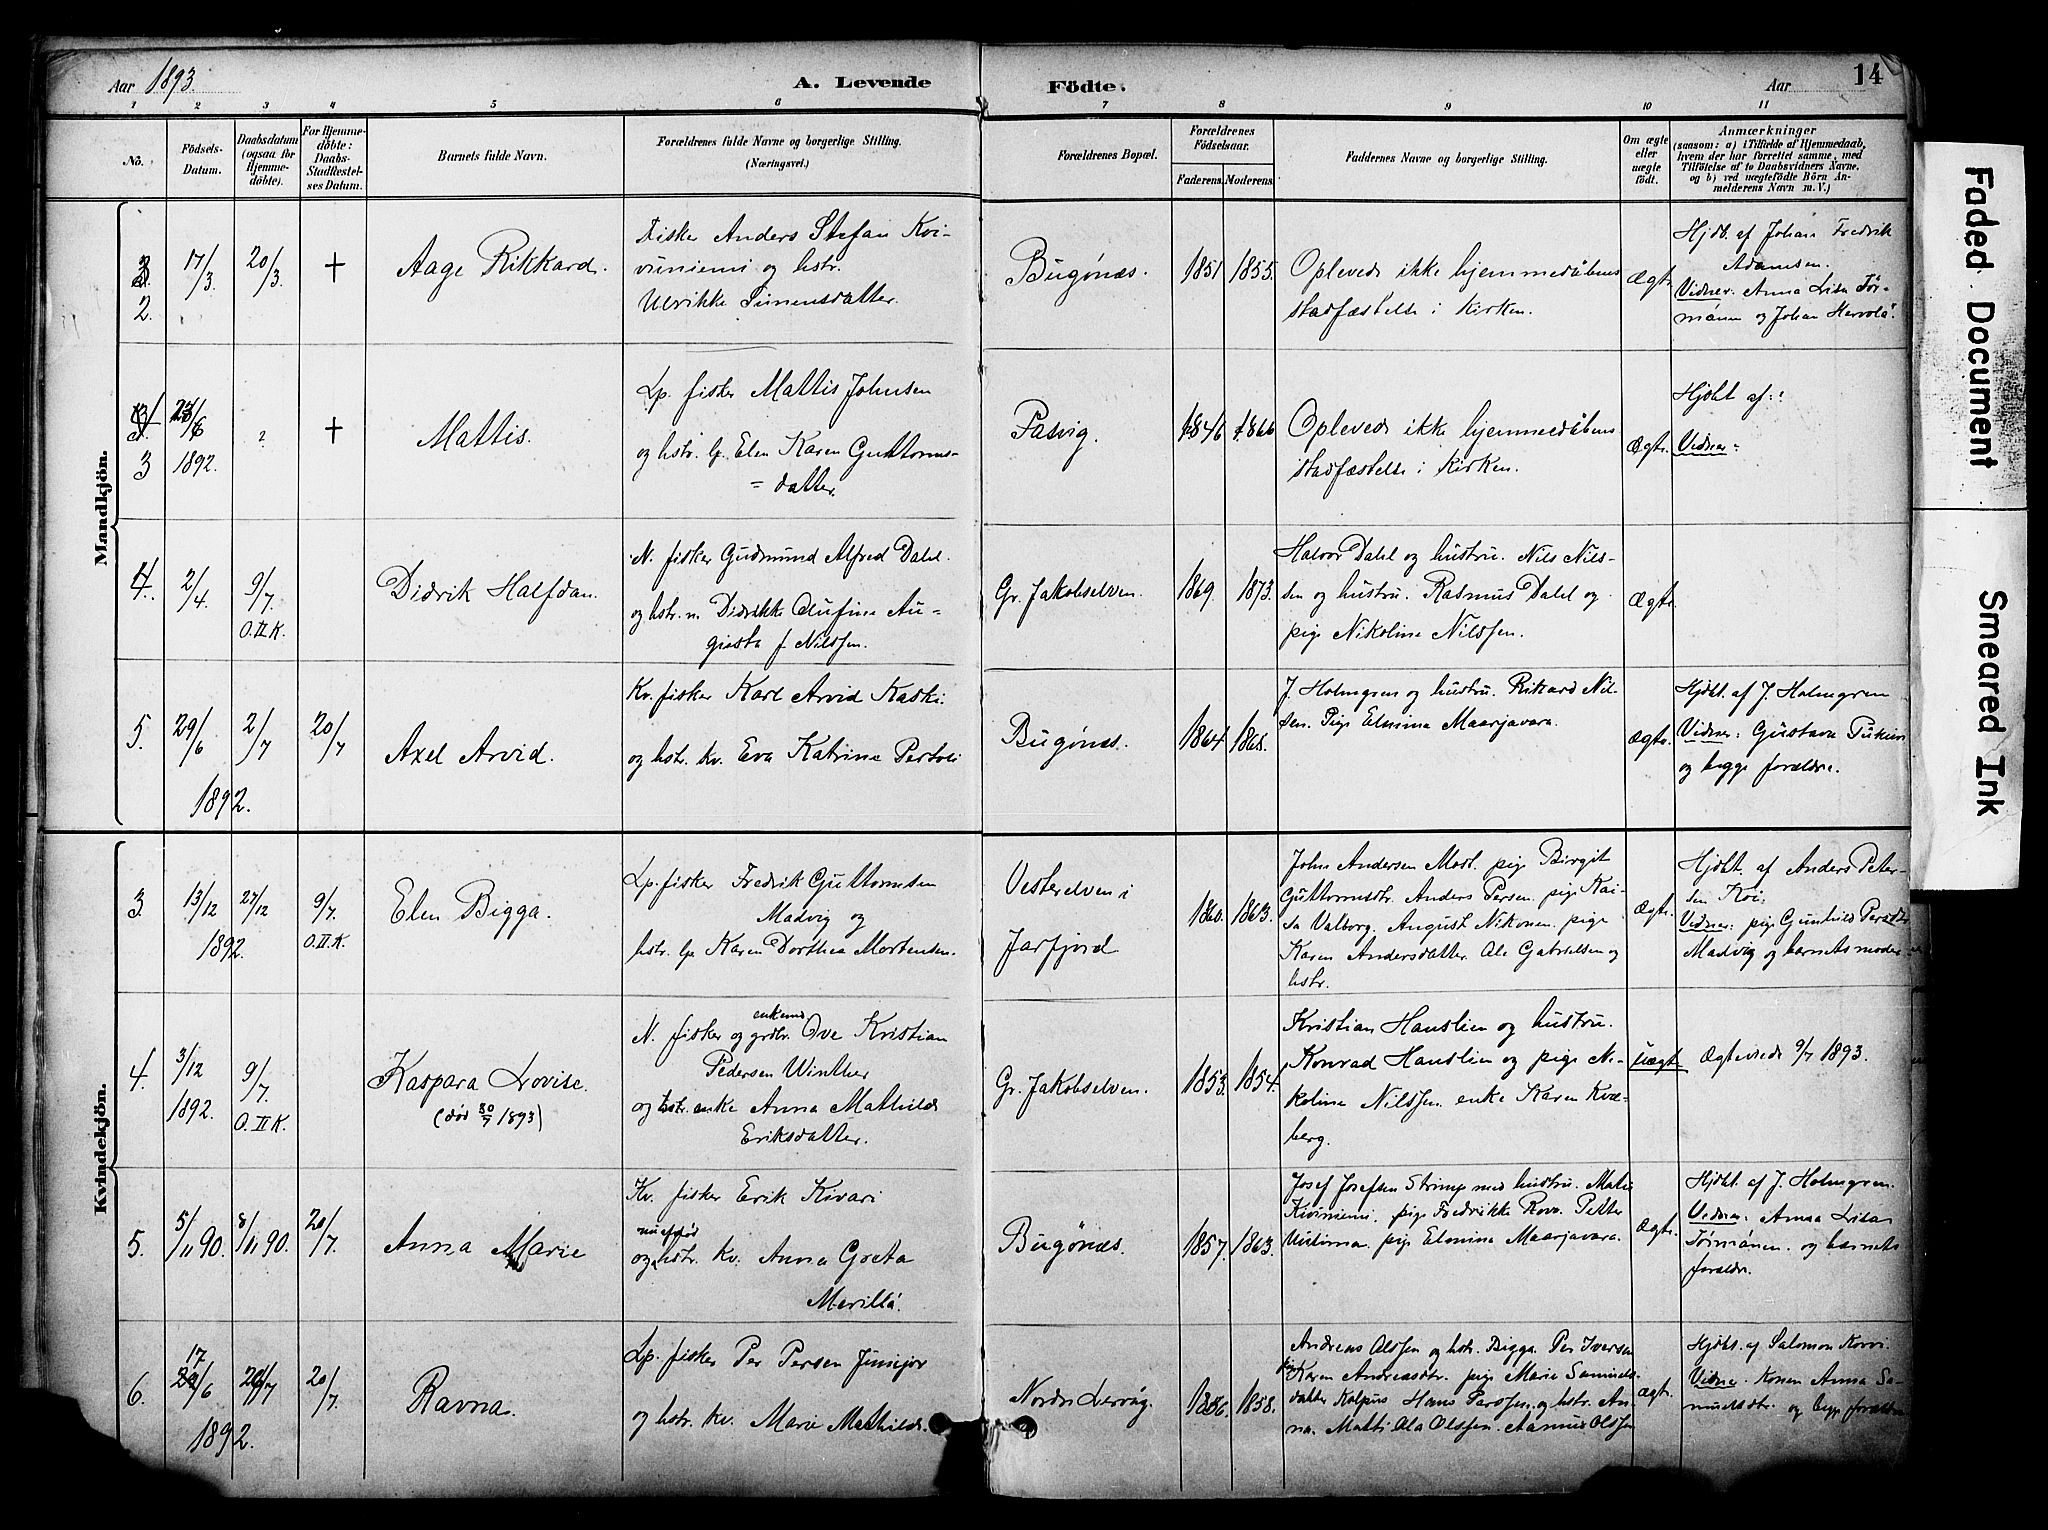 Aar 1893.
A. Levende
Födte.
Aar
14
1 2 3 4 5 6 7 8 9 10 11
No.
Födsels-
Datum.
Daabsdatum
(ogsaa for
Hjemme-
döbte).
For Hjemme-
döbte:
Daabs-
Stadfæstel-
ses Datum.
Barnets fulde Navn.
Forældrenes fulde Navne og borgerlige Stilling.
(Næringsvei.)
Forældrenes Bopæl.
Forældrenes
Födselsaar.
Faderens.
Moderens.
Faddernes Navne og borgerlige Stilling.
Om ægte
eller
uægte
födt.
Anmærkninger
(saasom: a) i Tilfælde af Hjemmedaab,
hvem der har forrettet samme, med
Tilföielse af to Daabsvidners Navne,
og b) ved uægtefödte Börn An-
melderens Navn m. V.)
Mandkjön.
2.
17/3
20/3
†
Aage Rikkard.
Fisker Anders Stefan Kvi-
viniemi og hstr.
Ulrikke Simensdatter.
Bugønæs.
1851
1855.
Opleved ikke hjemmedåbens
stadfæstelse i kirken.
Ægte
Hjdb. af Johan Fredrik
Adamsen.
Vidner. Anna Lisa Tör-
mänen og Johan Hervola.
3
1892.
?
†
Mattis.
Lp. fisker Mattis Johnsen
og hstr. lp. Elen Karen Guttorms-
= datter.
Pasvig.
1846
1866
Opleved ikke hjemmedåbens
stadfæstelse i kirken.
Ægte.
Hjdbt af:
Vidner:
4.
2/4.
9/7.
O.II K.
Didrik Halfdan.
N. fisker Gudmund Alfred Dahl.
og hstr. n. Didrikke Olufine Au=
gusta f. Nilssen.
Gr. Jakobselven.
1869.
1873.
Halvor Dahl og hustru. Nils Nils-
sen og hustru. Rasmus Dahl og
pige Nikoline Nilssen.
Ægte
5.
29/6
1892.
2/7
20/7
Axel Arvid.
Kv. fisker Karl Arvid Kaski.
og hstr. kv. Eva Katrine Pertoli
Bugønæs.
1864
1865.
J. Holmgren og hustru. Rikard Nil-
sen. Pige Elmina Maarjavara.
Ægte.
Hjdbt. af J. Holmgren
Vidner: Gustava
og begge forældre.
Kvindekjön.
3.
13/12
1892.
27/12
9/7.
O.II.K.
Elen Bigga.
Lp. fisker Fredrik Guttormsen
Madvig og
hstr. lp Karen Dorthea Mortensen.
Vesterelven i
Jarfjord
1860.
1863.
John Andersen Mort. pige Birgit
Guttormsdtr. Anders Persen. pige Kai-
sa Valborg. August Nikonen. pige
Karen Andersdatter. Ole Gabrielsen og
hstr.
Ægte.
Hjdbt. af Anders Peter-
sen Koi.
Vidner: pige Gunhild Persdtr
Madvig og barnets moder
4.
3/12
1892.
9/7.
O.II K.
Kaspara Lovise.
(død 30/7 1893)
N. fisker og grdbr. enkemd. Ove Kristian
Pedersen Winther
og hstr. enke Anna Mathilde
Eriksdatter.
Gr. Jakobselven.
1853.
1854.
Kristian Hauslien og hustru.
Konrad Hauslien og pige Ni-
koline Nilssen. enke Karen Kvæ-
berg.
uægte
Ægteviede 9/7 1893.
5.
5/11 90.
8/11 90.
20/7
Anna Marie
Kv. fisker Erik Kivari
og hstr. kv. Anna Greta
Merilla.
Bugønæs.
1857.
1863.
Josef Josefsen Strimp med hustru. Matis
Kiviniemi. pige Fredrikke Rova. Petter
Uusimaa. pige Elmina Maarjavara.
Ægte.
Hjdbt. af J. Holmgren.
Vidner: Anna Lisa
Törmänen. og barnets
forældre.
6.
17/6
1892.
20/7
Ravna.
Lp. fisker Per Persen Junsjov
og hstr. kv. Marie Mathilde
1856.
1858.
Andreas Olssen og hstr. Bigga. Per Iversen
Karen Andreasdtr. pige Marie Samuels-
datter Kalpus Hans Perssen. og hstr. An-
na. Matti Ola Olssen. Aamus Olssen
Ægte
Hjdbt. af Salomon Korvi
Vidner. Konen Anna Sa-
muelsdtr. og begge forældre
Faded Document
Smeared Ink